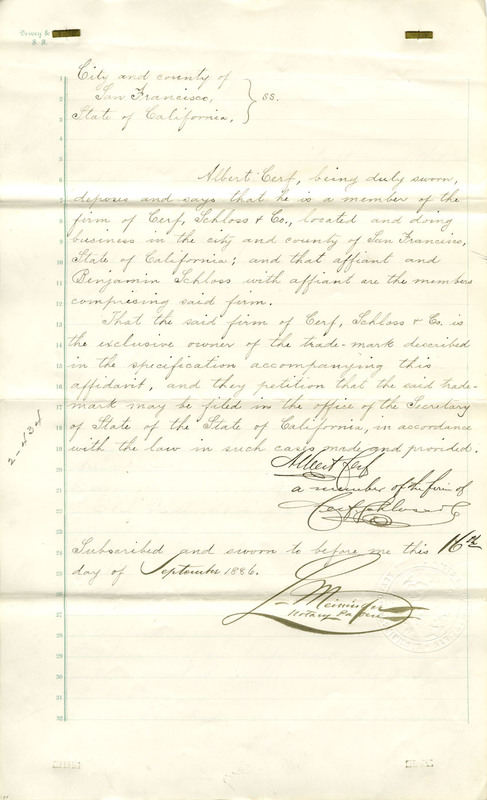 Dewey &
City and county of
San Francisco,
State of California.
} ss.
Albert Cerf, being duly sworn,
deposes and says that he is a member of the
firm of Cerf, Schloss & Co., located and doing
business in the city and county of San Francisco,
State of California; and that affiant and
Benjamin Schloss with affiant are the members
comprising said firm.
That the said firm of Cerf, Schloss & Co. is
the exclusive owner of the trade-mark described
in the specification accompanying this
affidavit, and they petition that the said trade-
mark may be filed in the office of the Secretary
of State of the State of California, in accordance
with the law in such cases made and provided.
Albert Cerf
a member of the firm of
Cerf Schloss & Co
Subscribed and sworn to before me this 16th
day of September 1886.
Notary Public
1
2
3
4
5
6
7
8
9
10
11
12
13
14
15
16
17
18
19
20
21
22
23
24
25
26
27
28
29
30
31
32